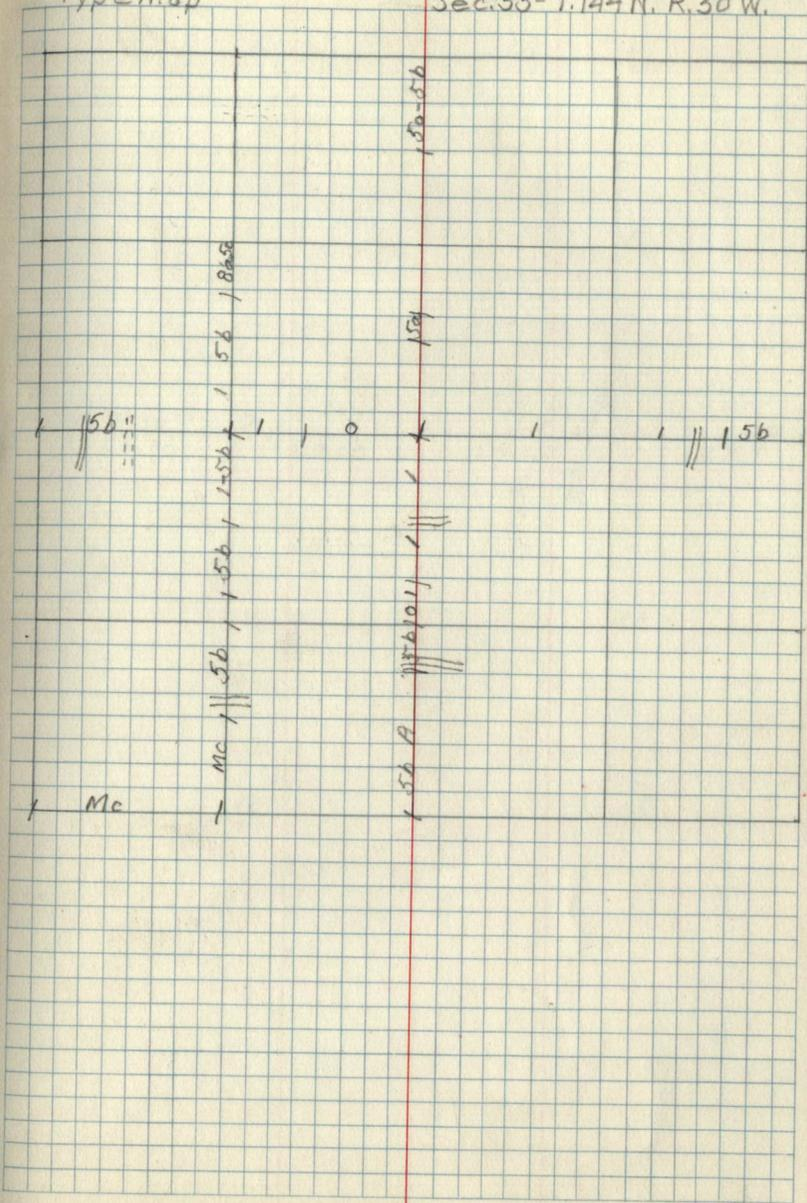 Type Map Sec.33- T.144 N. R.36 W.
5a-5b
8a5a
5b
5a
5b
5b
1-5b
5b
5b
5b
0
5b
0
Mc
5b A
Mc